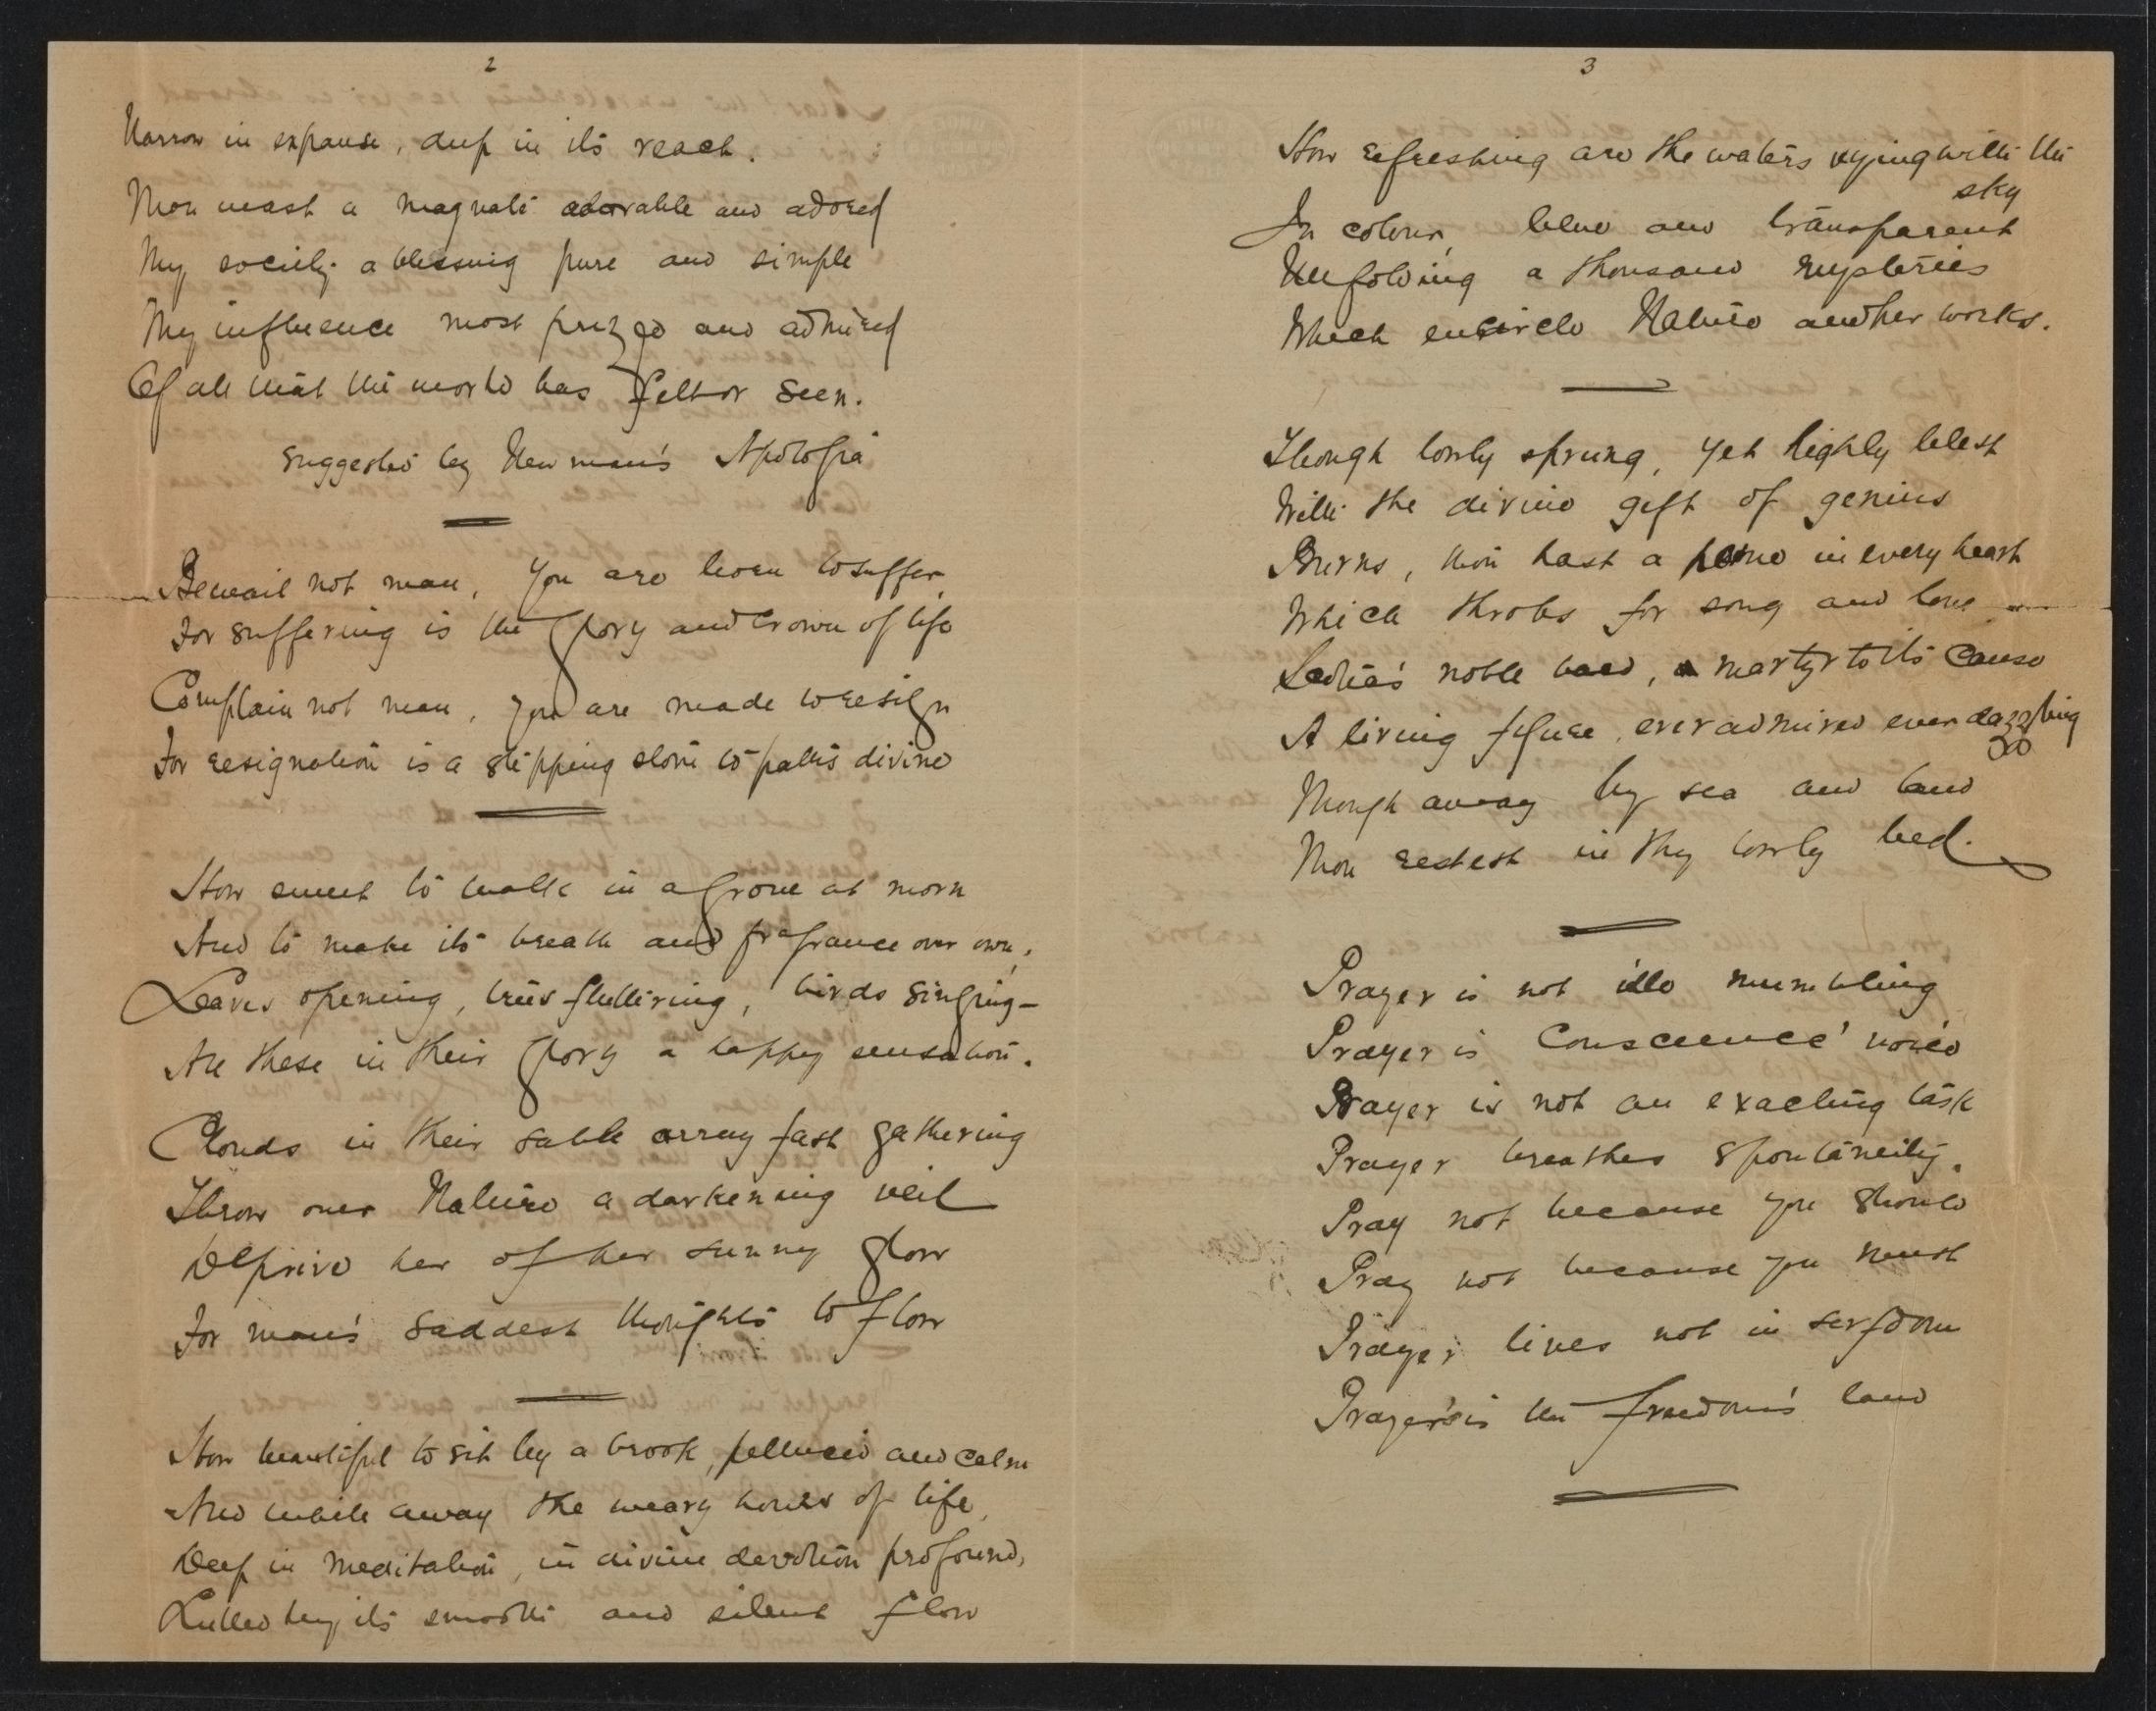 2
Narrow in expanse, deep in its reach.
Thou wast a magnate adorable and adored
Thy society a blessing pure and simple
Thy influence most prized and admired
Of all that the world has felt or seen.
Suggested by Newman's Apologia
Bewail not man, you are born to suffer,
For suffering is the glory and crown of life
Complain not man, you are made to resign
For resignation is a stepping stone to paths divine
How sweet to walk in a grove at morn
And to make its breath and fragrance our own,
Leaves opening, trees fluttering, birds singing—
All these in their glory a happy sensation.
Clouds in their sable array fast gathering
Throw over Nature a darkening veil
Deprive her of her sunny glow
For man's saddest thoughts to flow
How beautiful to sit by a brook, pellucid and calm
And while away the weary hours of life,
Deep in meditation, in divine devotion profound,
Lulled by its smooth and silent flow
3
How refreshing are the waters vying with the
sky
In colour, blue and transparent
Unfolding a thousand mysteries
Which encircle Nature and her works.
Though lowly sprung, yet highly blest
With the divine gift of genius
Burns, thou hast a home in every heart
Which throbs for song and love
Scotia's noble bard, a martyr to its cause
A living figure, ever admired ever dazzling
Though away by sea and land
Thou restest in thy lowly bed.
Prayer is not idle mumbling
Prayer is Conscience' voice
Prayer is not an exacting task
Prayer breathes spontaneity.
Pray not because you should
Pray not because you must
Prayer lives not in serfdom
Prayer's in the freedom's land